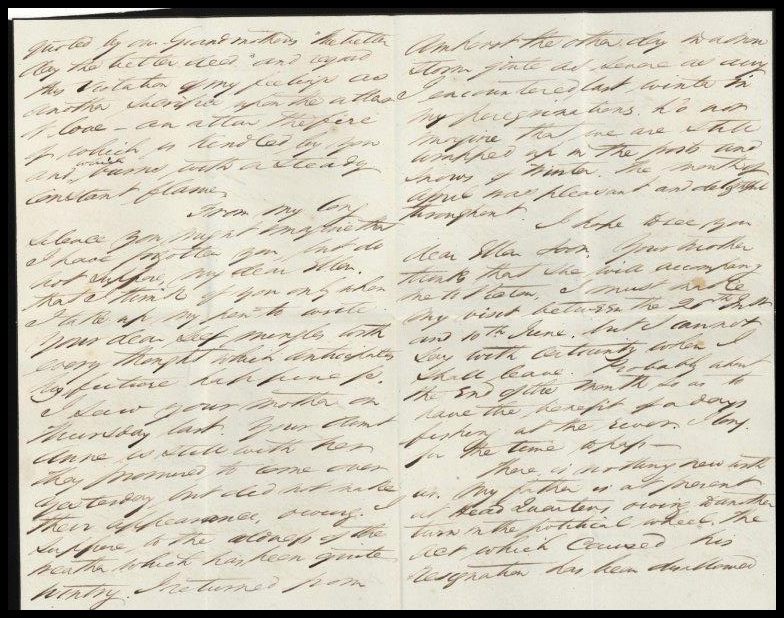 quoted by our Grandmothers "the better
day the better deed" and regard
this of my feelings as
another sacrifice upon the altar
of love – an altar the fire
of which is kindled by you
and which burns with a steady
constant flame
From my long
silence you might imagine that
I have forgotten you, but do
not suppose, my dear Ellen,
that I think of you only when
I take up my pen to write.
Your dear self mingles with
every thought which anticipates
future happiness.
I saw your Mother on
Thursday last. Your Aunt
Anne is still with her
they promised to come over
yesterday, but did not make
their appearance, owing I
suppose to the of the
weather which has been quite
wintry. I returned from
Amherst the other day in a snow
storm quite as severe as any
I encountered last winter in
my peregrinations. Do not
imagine that we are still
wrapped up in the frosts and
snows of Winter. The month of
April was pleasant and delightful
throughout.
I hope to see you
dear Ellen soon. Your Mother
thinks that she will accompany
me to Pictou. I must make
my visit between the 20th
and 10th June. but I cannot
say with certainty when I
shall leave. Probably about
the end of the month so as to
have the benefit of a days
fishing at the river. I long
for the time to pass—
There is nothing new with
us. My father is at present
at Head Quarters, owing to another
turn in the political wheel. The
Act which caused his
resignation has been disallowed